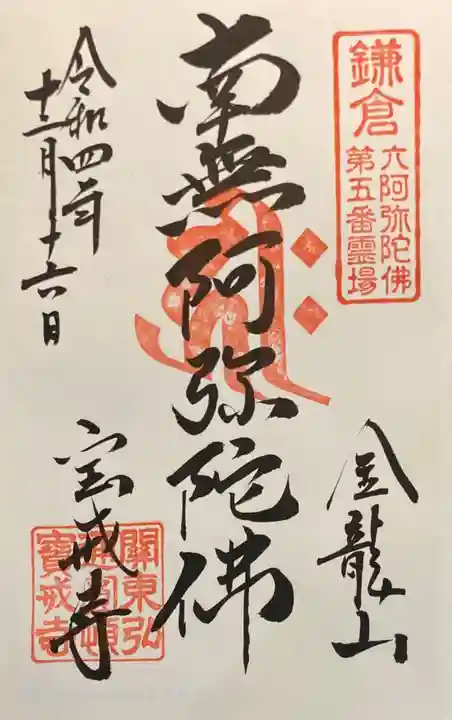 鎌倉
六阿弥陀佛
第五番霊場
金龍山
南無阿弥陀佛
令和四年
十二月十六日
宝戒寺
關東弘
寶戒寺